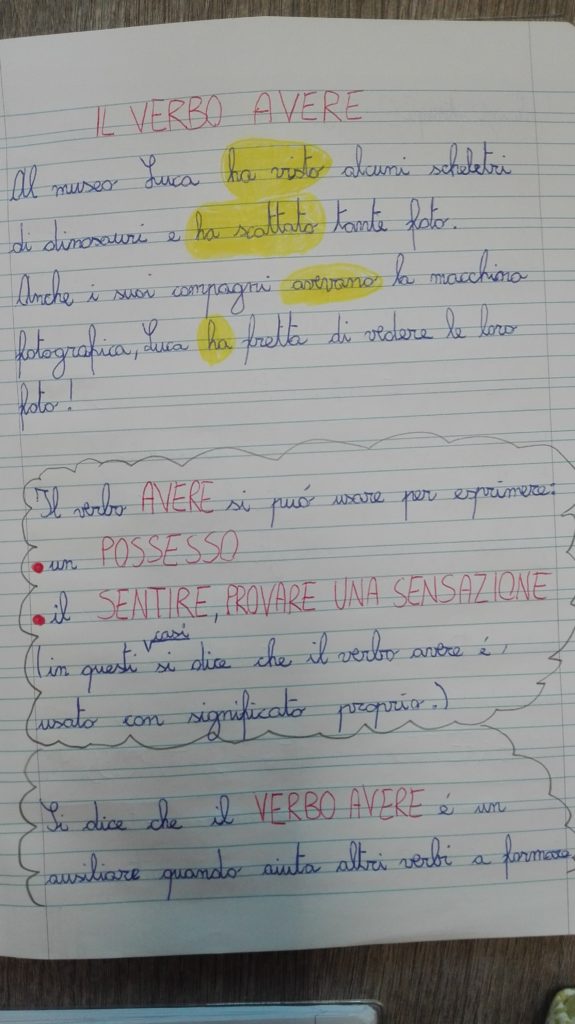 IL VERBO AVERE
Al museo Luca ha visto alcuni scheletri
di dinosauri e ha scattato tante foto.
Anche i suoi compagni avevano la macchina
fotografica, Luca ha fretta di vedere le loro
foto!
Il verbo AVERE si puó usare per esprimere:
• un POSSESSO
• il SENTIRE, PROVARE UNA SENSAZIONE
(in questi casi si dice che il verbo avere é
usato con significato proprio.)
Si dice che il VERBO AVERE é un
ausiliare quando aiuta altri verbi a formare